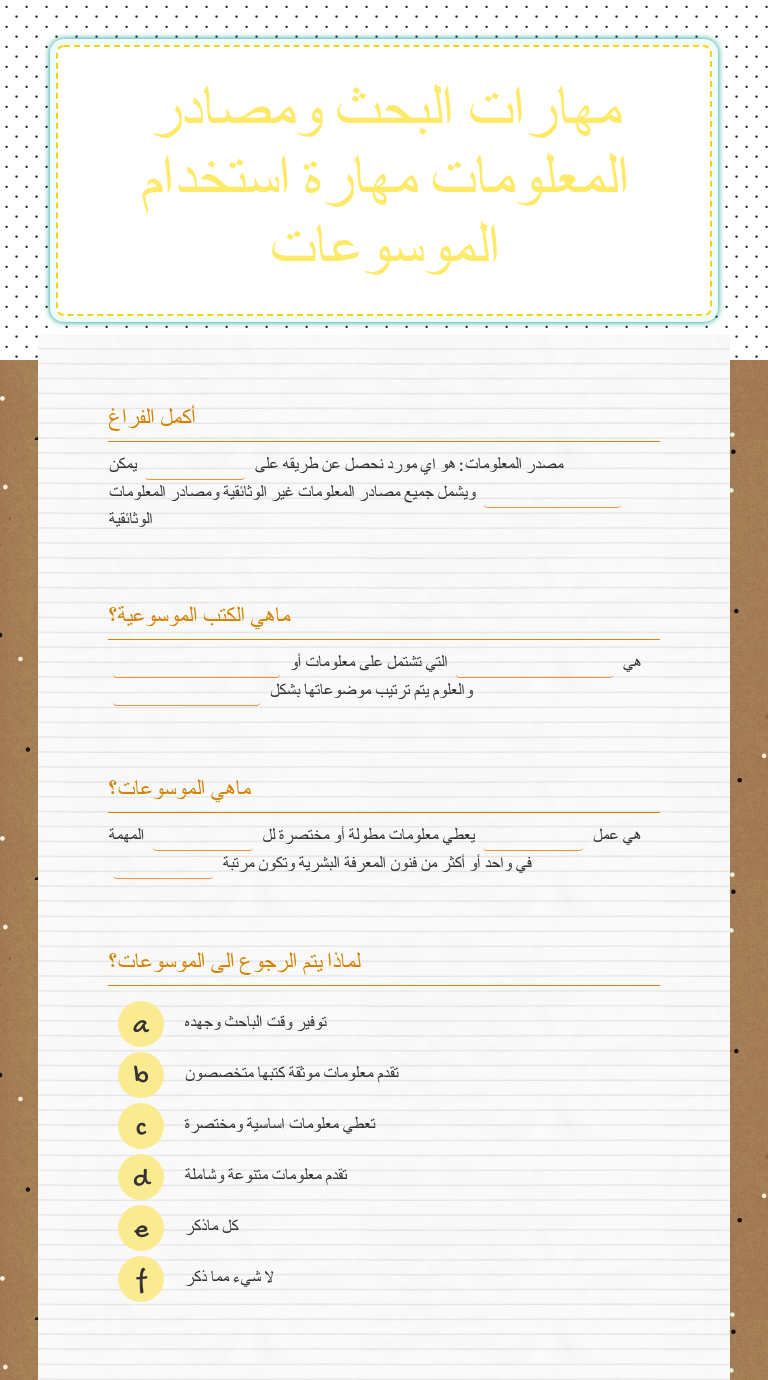 مهارات البحث ومصادر
المعلومات مهارة استخدام
الموسوعات
أكمل الفراغ
مصدر المعلومات: هو اي مورد نحصل عن طريقه على يمكن
ويشمل جميع مصادر المعلومات غير الوثائقية ومصادر المعلومات
الوثائقية
ماهي الكتب الموسوعية؟
هي التي تشتمل على معلومات أو
والعلوم يتم ترتيب موضوعاتها بشكل
ماهي الموسوعات؟
هي عمل يعطي معلومات مطولة أو مختصرة لل المهمة
في واحد أو أكثر من فنون المعرفة البشرية وتكون مرتبة
لماذا يتم الرجوع الى الموسوعات؟
a توفير وقت الباحث وجهده
b تقدم معلومات موثقة كتبها متخصصون
c تعطي معلومات اساسية ومختصرة
d تقدم معلومات متنوعة وشاملة
e كل ماذكر
f لا شيء مما ذكر